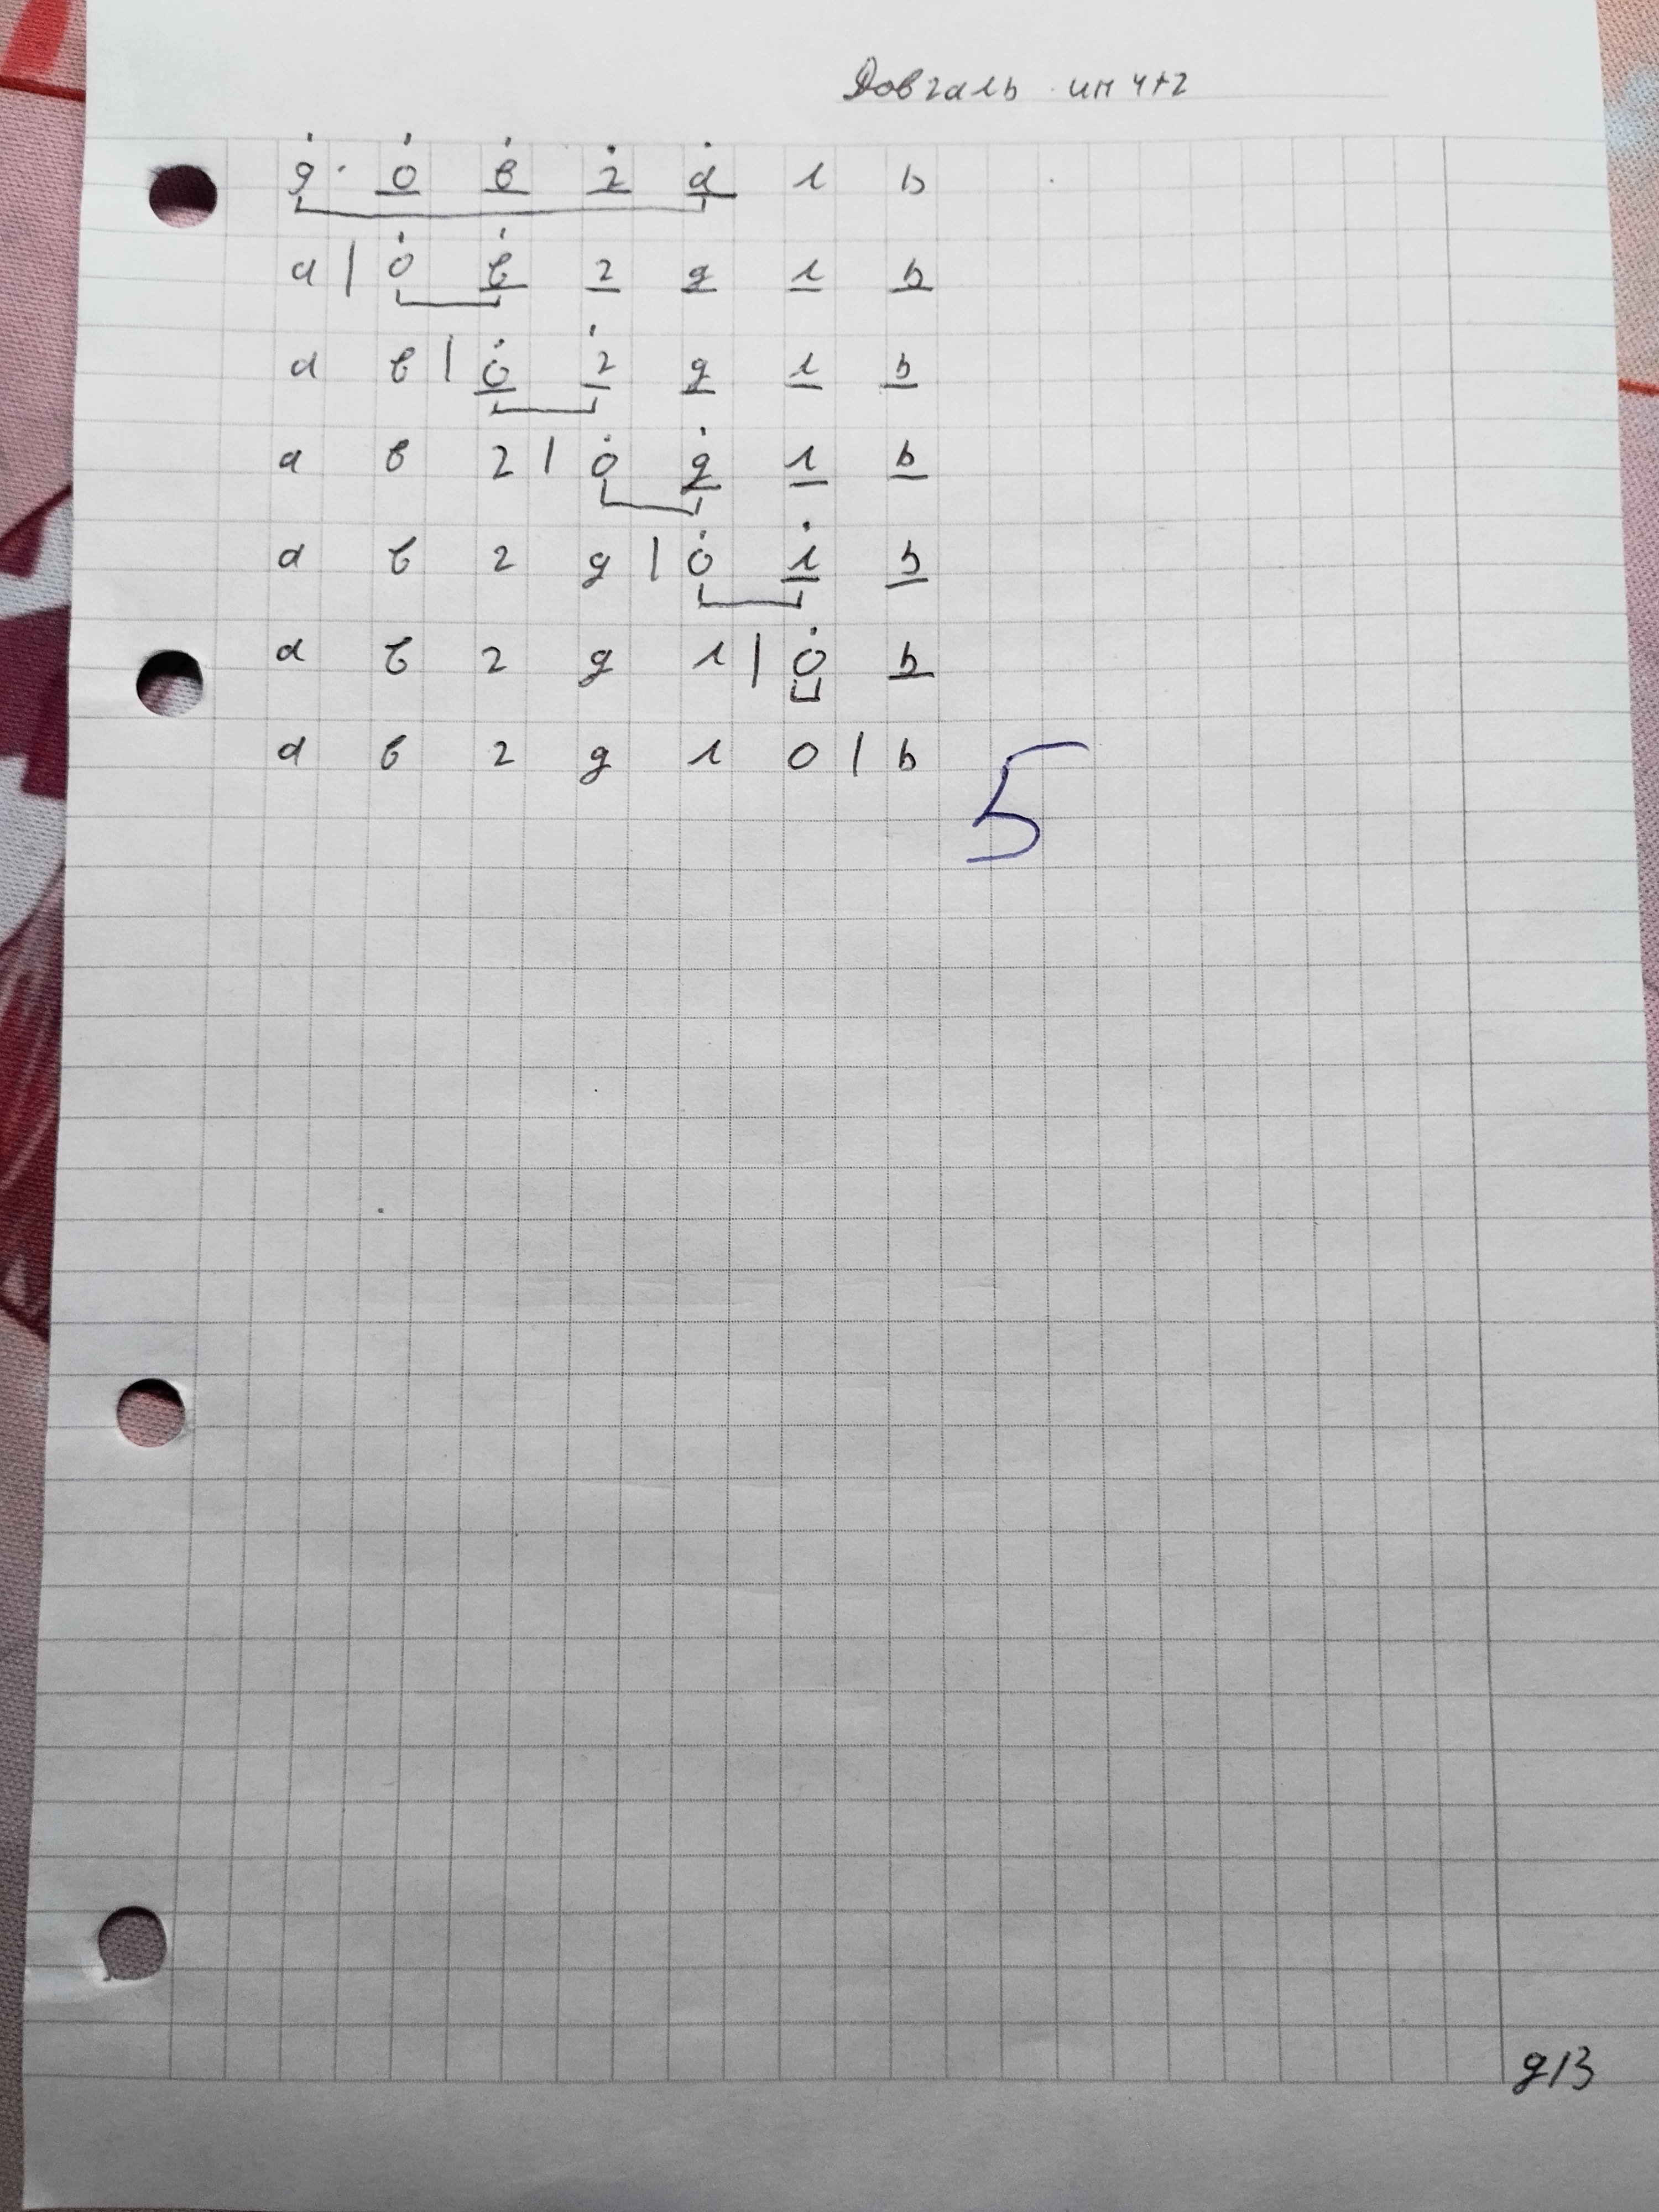 Довгаль ип 4+2
д о в г а л ь
а | о в г д л ь
а в | о г д л ь
а в г | о д л ь
а в г д | о л ь
а в г д л | о ь
а в г д л о | ь
5
д/з